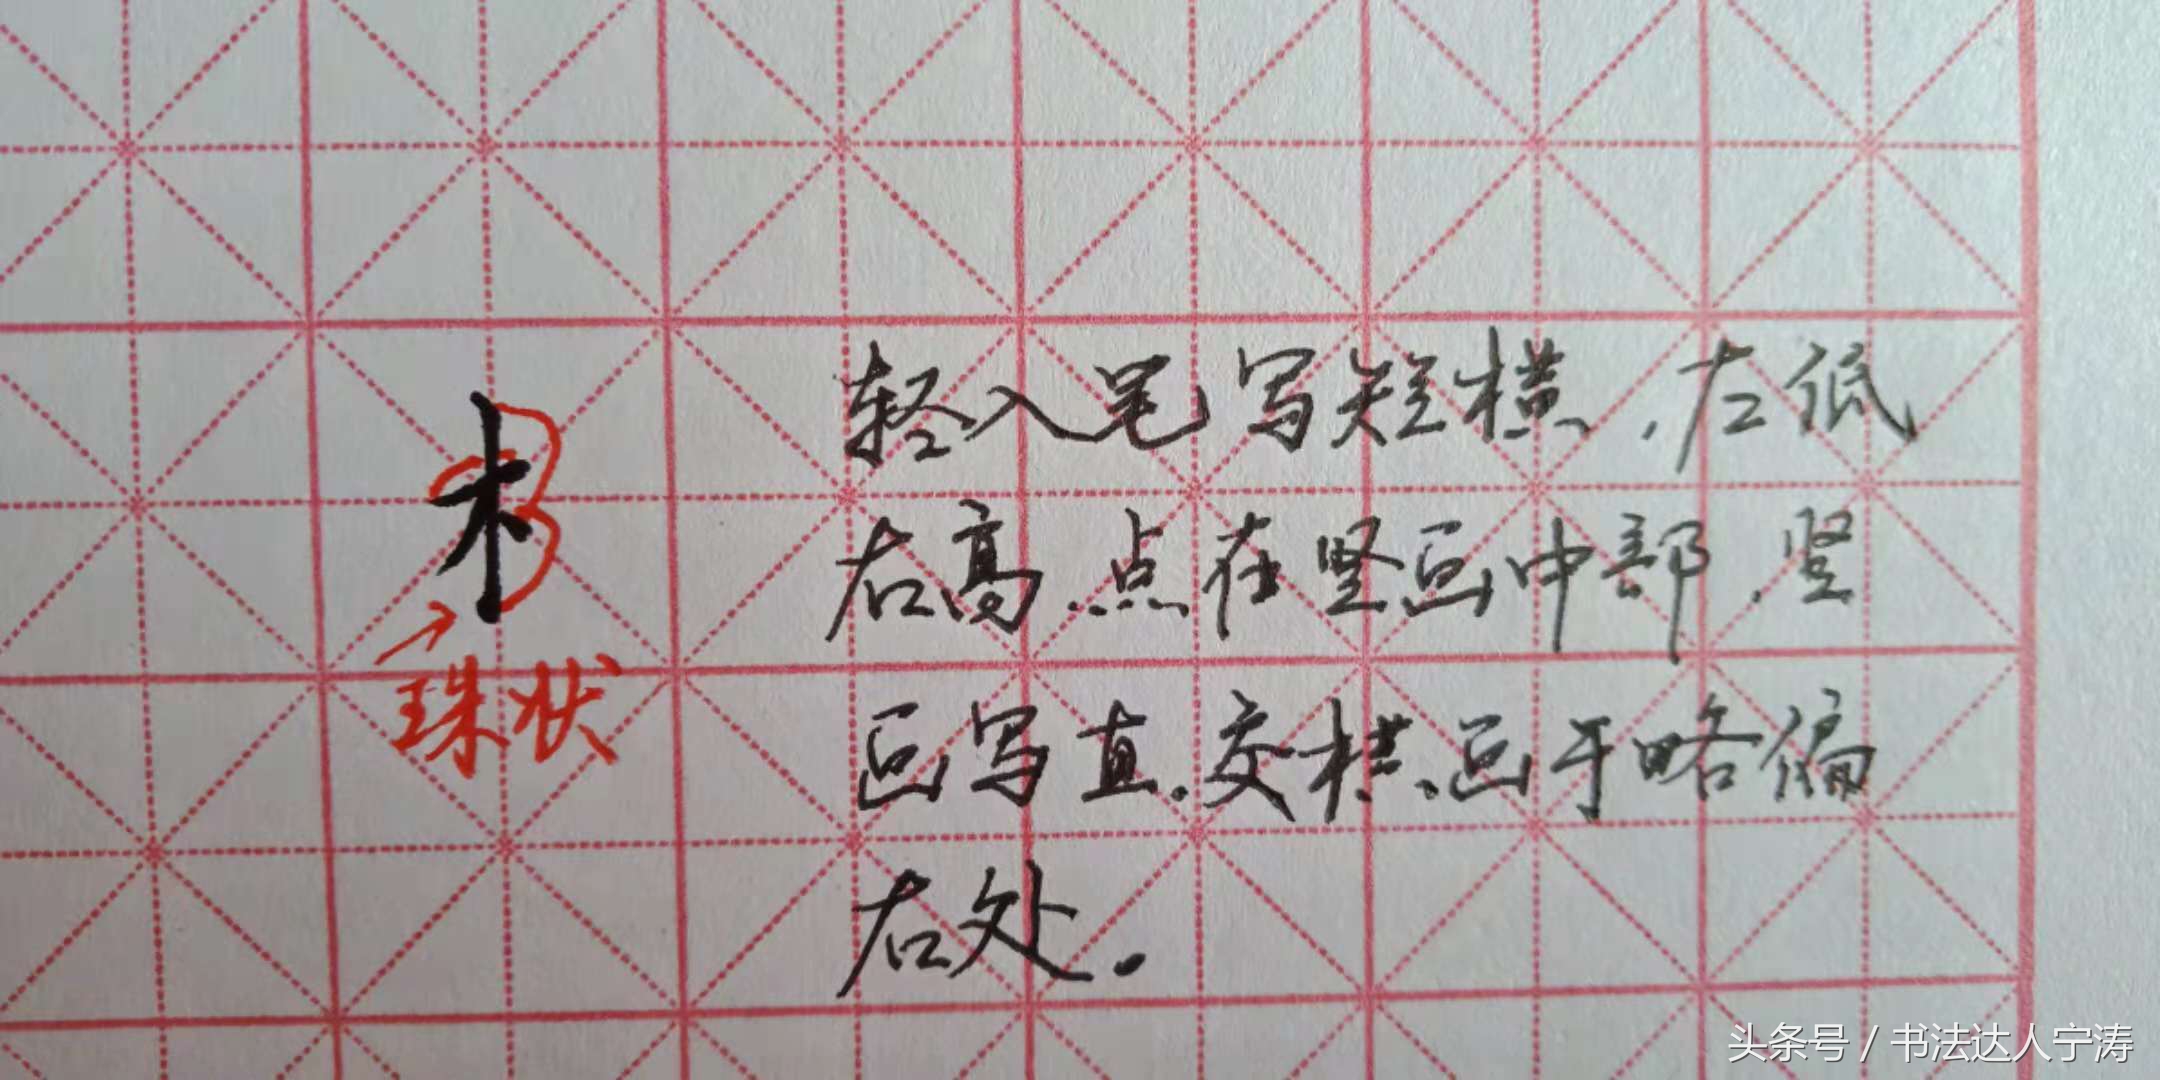 轻入笔写短横,左低
右高.点在竖画中部.竖
画写直.交横画于略偏
右处.
木
珠状
头条号 / 书法达人宁涛